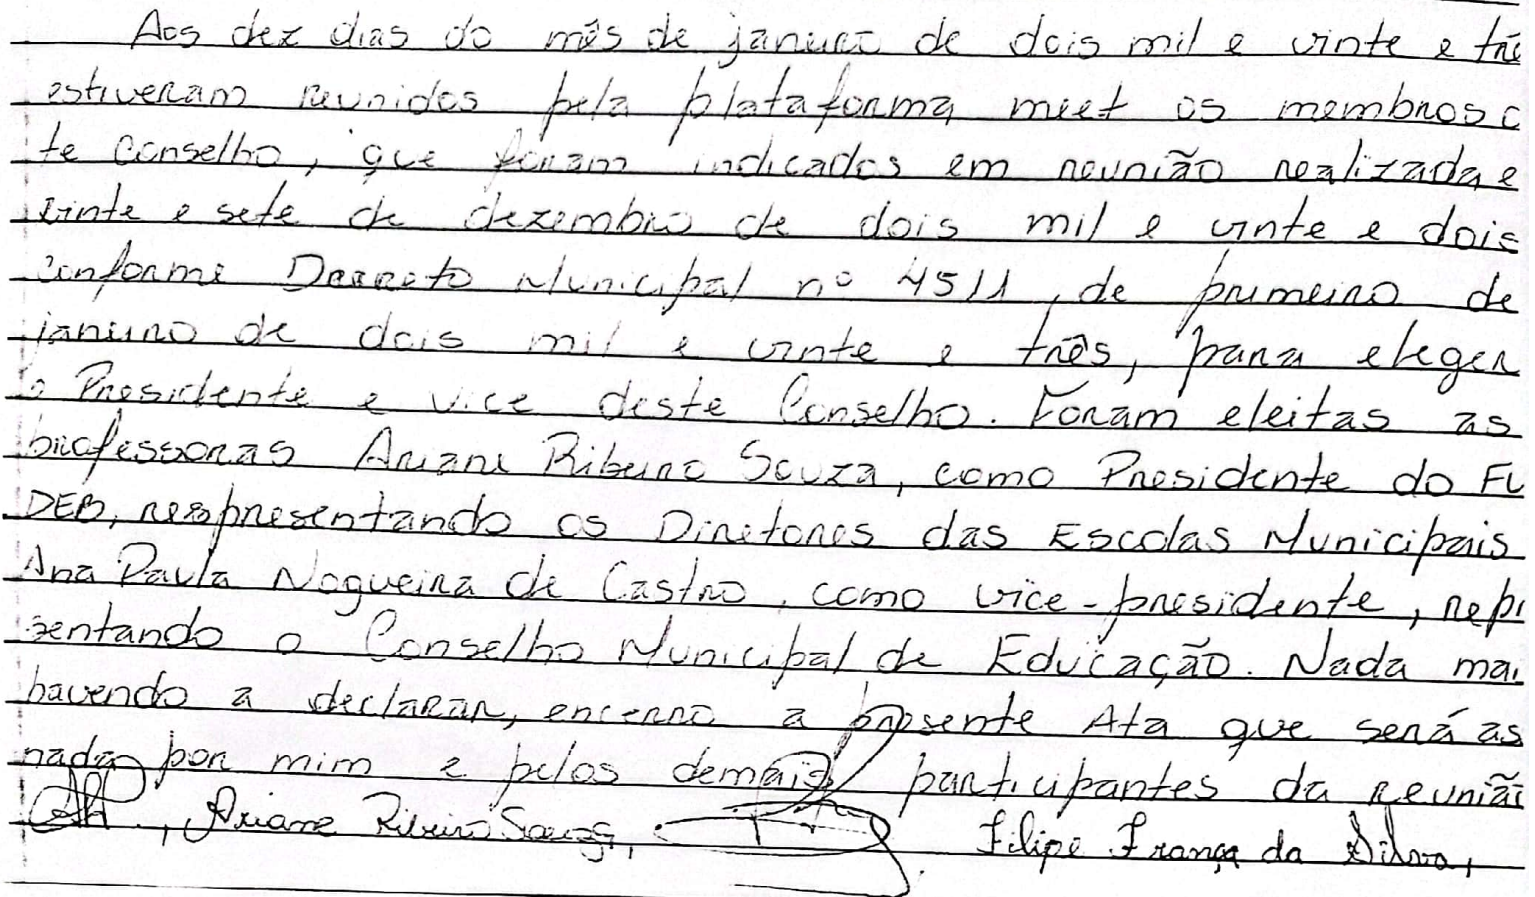 Aos dez dias do mês de janeiro de dois mil e vinte e trê
estiveram reunidos pela plataforma meet os membros d
te Conselho, que foram indicados em reunião realizada e
vinte e sete de dezembro de dois mil e vinte e dois
conforme Decreto Municipal nº 4511, de primeiro de
janeiro de dois mil e vinte e três, para eleger
o Presidente e vice deste Conselho. Foram eleitas as
professoras Ariane Ribeiro Souza, como Presidente do FU
DEB, respresentando os Diretores das Escolas Municipais
Ana Paula Nogueira de Castro, como vice-presidente, repr
sentando o Conselho Municipal de Educação. Nada mai
havendo a declarar, encerro a presente Ata que será as
nada por mim e pelos demais participantes da reuniã
, Ariane Ribeiro Souza, Filipe França da Silva,